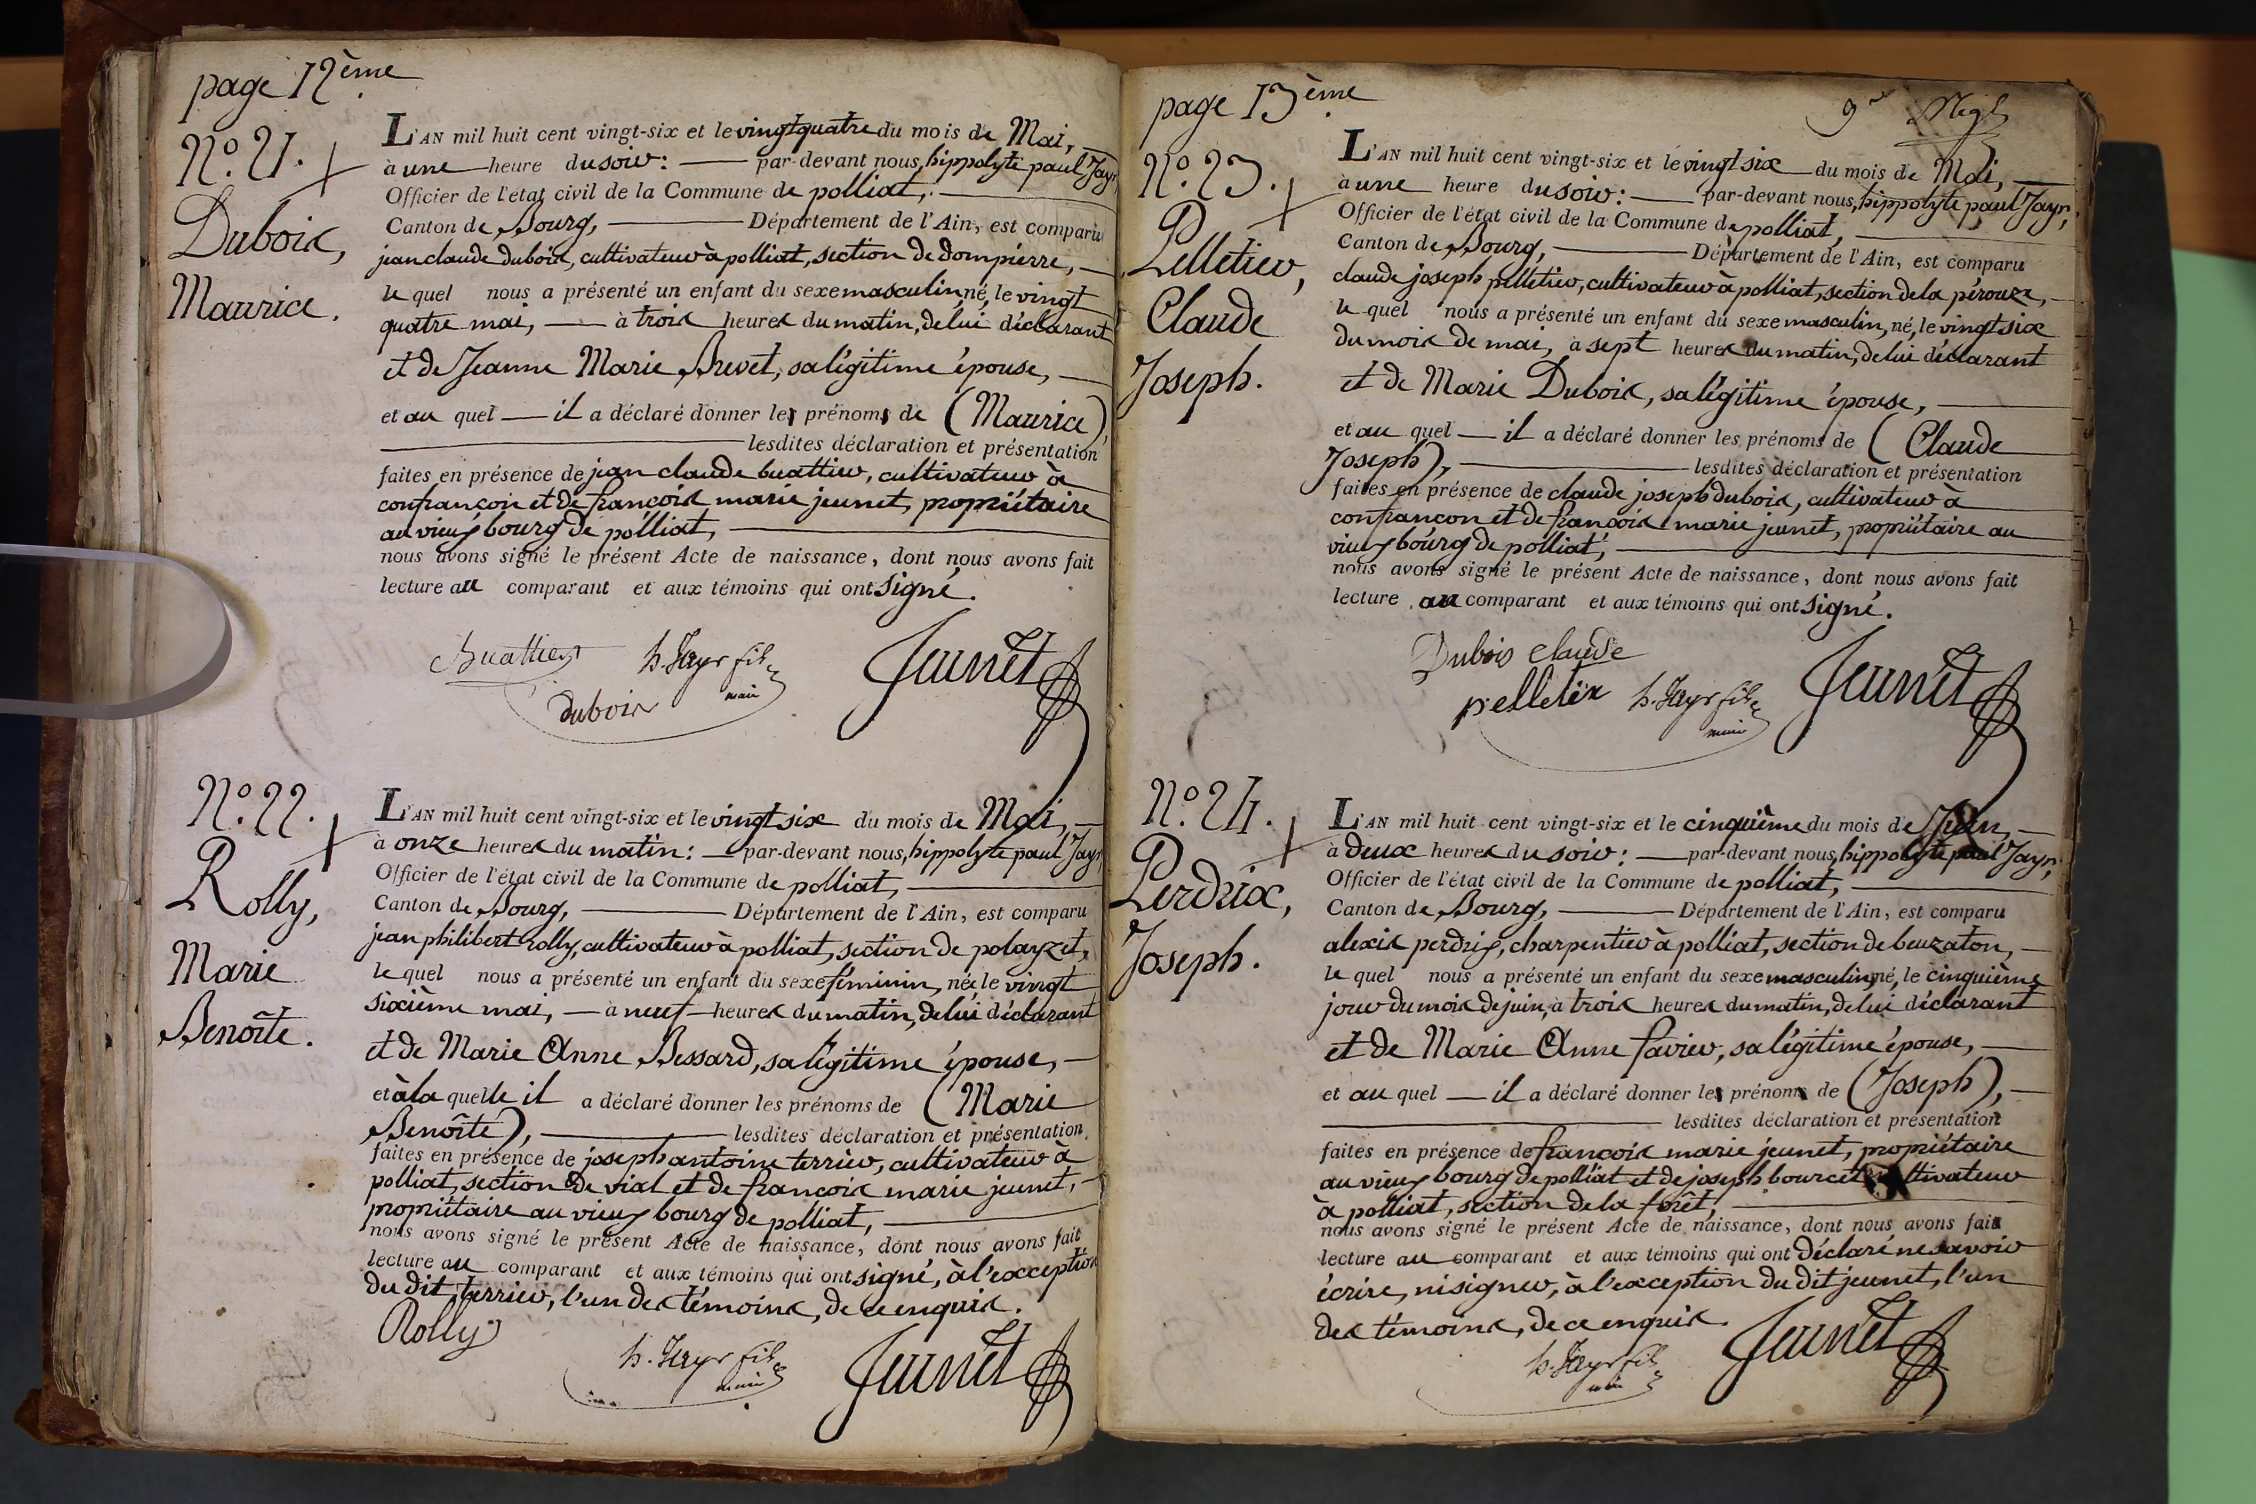 page 12ème
N.º 21.
Dubois,
Maurice.
L'AN mil huit cent vingt-six et le vingt quatre du mois de Mai,
à une heure du soir: par-devant nous, hippolyte paul Jayr,
Officier de l'état civil de la Commune de polliat,
Canton de Bourg, Département de l'Ain, est comparu
jean claude dubois, cultivateur à polliat, section de dompierre,
le quel nous a présenté un enfant du sexe masculin né, le vingt
quatre mai, à trois heures du matin, de lui déclarant
et de Jeanne Marie Brevet, sa légitime épouse,
et au quel il a déclaré donner les prénoms de (Maurice),
lesdites déclaration et présentation
faites en présence de jean claude buattier, cultivateur à
confrançon et de françois marie jeunet, propriétaire
au vieux bourg de polliat,
nous avons signé le présent Acte de naissance, dont nous avons fait
lecture au comparant et aux témoins qui ont signé.
Buattier h. Jayr fils Jeunet
dubois maire
N.º 22.
Rolly,
Marie
Benoîte.
L'AN mil huit cent vingt-six et le vingt six du mois de Mai,
à onze heures du matin: par-devant nous, hippolyte paul Jayr,
Officier de l'état civil de la Commune de polliat,
Canton de Bourg, Département de l'Ain, est comparu
jean philibert rolly, cultivateur à polliat, section de polayzet,
le quel nous a présenté un enfant du sexe féminin, née le vingt
sixième mai, à neuf heures du matin, de lui déclarant
et de Marie Anne Bessard, sa légitime épouse,
et à la quelle il a déclaré donner les prénoms de (Marie
Benoîte), lesdites déclaration et présentation
faites en présence de joseph antoine terrier, cultivateur à
polliat, section de vial et de françois marie jeunet,
propriétaire au vieux bourg de polliat,
nous avons signé le présent Acte de naissance, dont nous avons fait
lecture au comparant et aux témoins qui ont signé, à l'exception
du dit terrier, l'un des témoins, de ce enquis.
Rolly
h. Jayr fils Jeunet
maire
page 13ème
N.º 23.
Pelletier,
Claude
Joseph.
L'AN mil huit cent vingt-six et le vingt six du mois de Mai,
à une heure du soir: par-devant nous, hippolyte paul Jayr,
Officier de l'état civil de la Commune de polliat,
Canton de Bourg, Département de l'Ain, est comparu
claude joseph pelletier, cultivateur à polliat, section de la pérouze,
le quel nous a présenté un enfant du sexe masculin, né, le vingt six
du mois de mai, à sept heures du matin, de lui déclarant
et de Marie Dubois, sa légitime épouse,
et au quel il a déclaré donner les prénoms de (Claude
Joseph), lesdites déclaration et présentation
faites en présence de claude joseph dubois, cultivateur à
confrançon et de françois marie jeunet, propriétaire au
vieux bourg de polliat,
nous avons signé le présent Acte de naissance, dont nous avons fait
lecture au comparant et aux témoins qui ont signé.
Dubois claude
pelletier h. Jayr fils Jeunet
maire
N.º 24.
Perdrix,
Joseph.
L'AN mil huit cent vingt-six et le cinquième du mois de Juin,
à deux heures du soir: par-devant nous, hippolyte paul Jayr,
Officier de l'état civil de la Commune de polliat,
Canton de Bourg, Département de l'Ain, est comparu
alexis perdrix, charpentier à polliat, section de beuzaton,
le quel nous a présenté un enfant du sexe masculin né, le cinquième
jour du mois de juin, à trois heures du matin, de lui déclarant
et de Marie Anne favier, sa légitime épouse,
et au quel il a déclaré donner les prénoms de (Joseph),
lesdites déclaration et présentation
faites en présence de françois marie jeunet, propriétaire
au vieux bourg de polliat et de joseph bourcet cultivateur
à polliat, section de la forêt,
nous avons signé le présent Acte de naissance, dont nous avons fait
lecture au comparant et aux témoins qui ont déclaré ne savoir
écrire, ni signer, à l'exception du dit jeunet, l'un
des témoins, de ce enquis.
h. Jayr fils Jeunet
maire